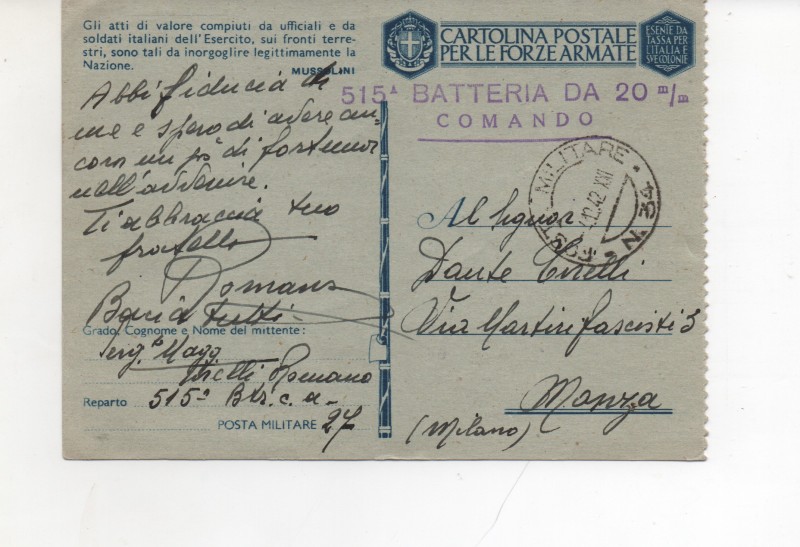 Gli atti di valore compiuti da ufficiali e da
soldati italiani dell'Esercito, sui fronti terre-
stri, sono tali da inorgoglire legittimamente la
Nazione.
MUSSOLINI
CARTOLINA POSTALE
PER LE FORZE ARMATE
ESENTE DA
TASSA PER
L'ITALIA E
SVE COLONIE
515ª BATTERIA DA 20 m/m
COMANDO
Abbi fiducia di
me e spero di avere an-
cora un pò di fortuna
nell'avvenire.
Ti abbraccia tuo
fratello
Romano
Bacia tutti
POSTA MILITARE
12.42 XXI
N. 34
Al Signor
Dante Cirelli
Via Martiri fascisti 3
Monza
(Milano)
Grado, Cognome e Nome del mittente:
Serg. Magg.
Cirelli Romano
Reparto 515ª Btr. c. a.
POSTA MILITARE 27